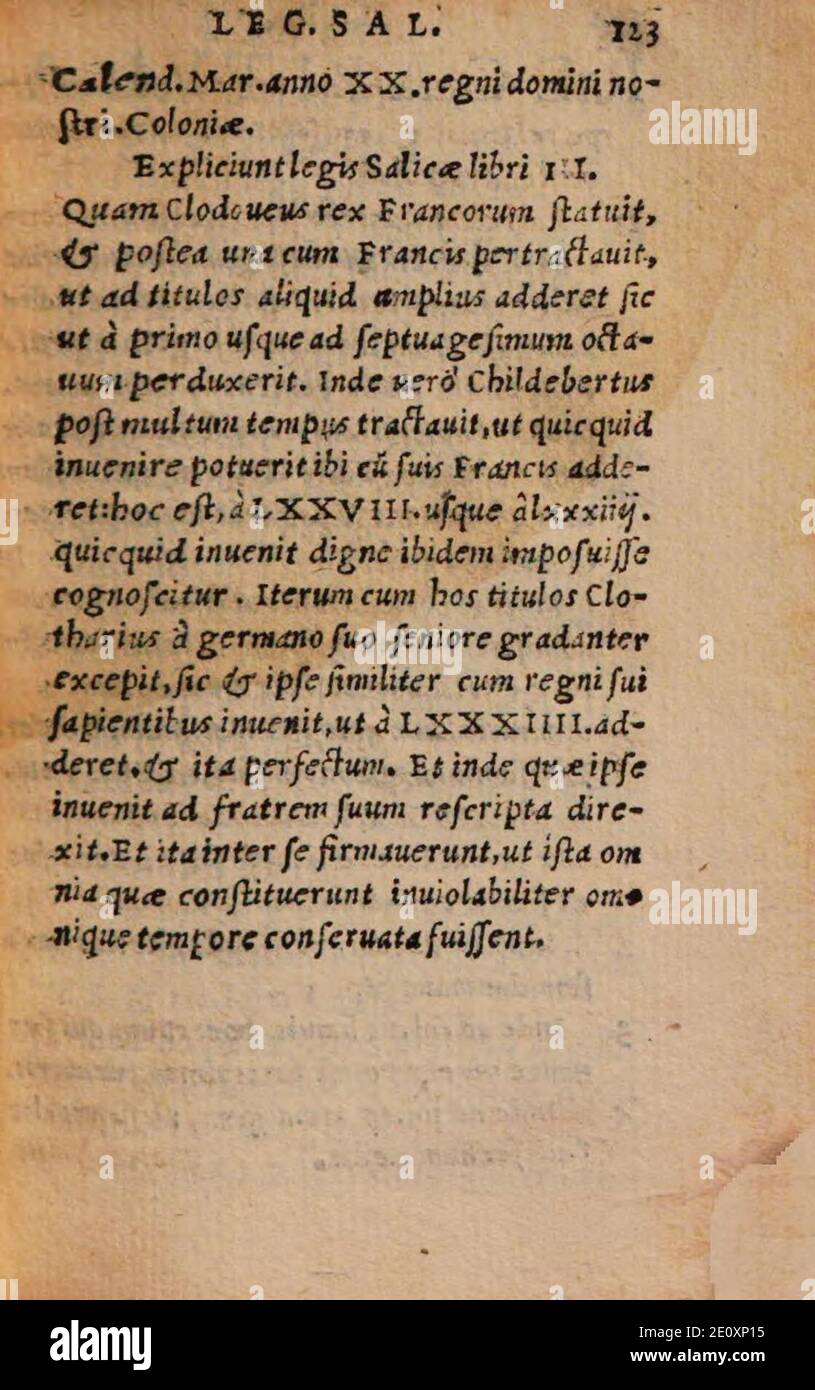 LEG. SAL. 123
Calend. Mar. anno XX. regni domini no-
ſtri. Coloniæ.
Expliciunt legis Salicæ libri III.
Quam Clodoueus rex Francorum ſtatuit,
& poſtea una cum Francis pertractauit,
ut ad titulos aliquid amplius adderet ſic
ut à primo uſque ad ſeptuageſimum octa-
uum perduxerit. Inde uerò Childebertus
poſt multum tempus tractauit, ut quicquid
inuenire potuerit ibi cũ ſuis Francis adde-
ret: hoc eſt, à LXXVIII. uſque àlxxxiiij.
quicquid inuenit digne ibidem impoſuiſſe
cognoſcitur. Iterum cum hos titulos Clo-
tharius à germano ſuo ſeniore gradanter
excepit, ſic & ipſe ſimiliter cum regni ſui
ſapientibus inuenit, ut à LXXXIIII. ad-
deret, & ita perfectum. Et inde quæ ipſe
inuenit ad fratrem ſuum reſcripta dire-
xit. Et ita inter ſe firmauerunt, ut iſta om
nia quæ conſtituerunt inuiolabiliter om-
nique tempore conſeruata fuiſſent.
alamy
Image ID: 2E0XP15
www.alamy.com